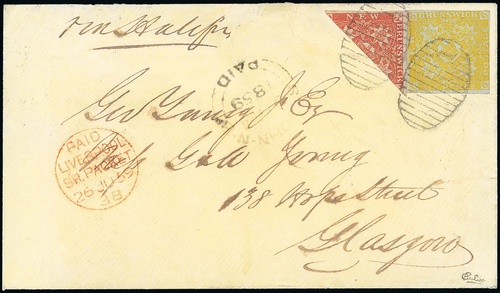 via Halifax
NEW
BRUNSWICK
BRUNSWICK
PAID
1859
Geo Young Jr Esq
Geo Young
138 Hope Street
Glasgow
PAID
LIVERPOOL
BR. PACKET
26 JU 59
3B